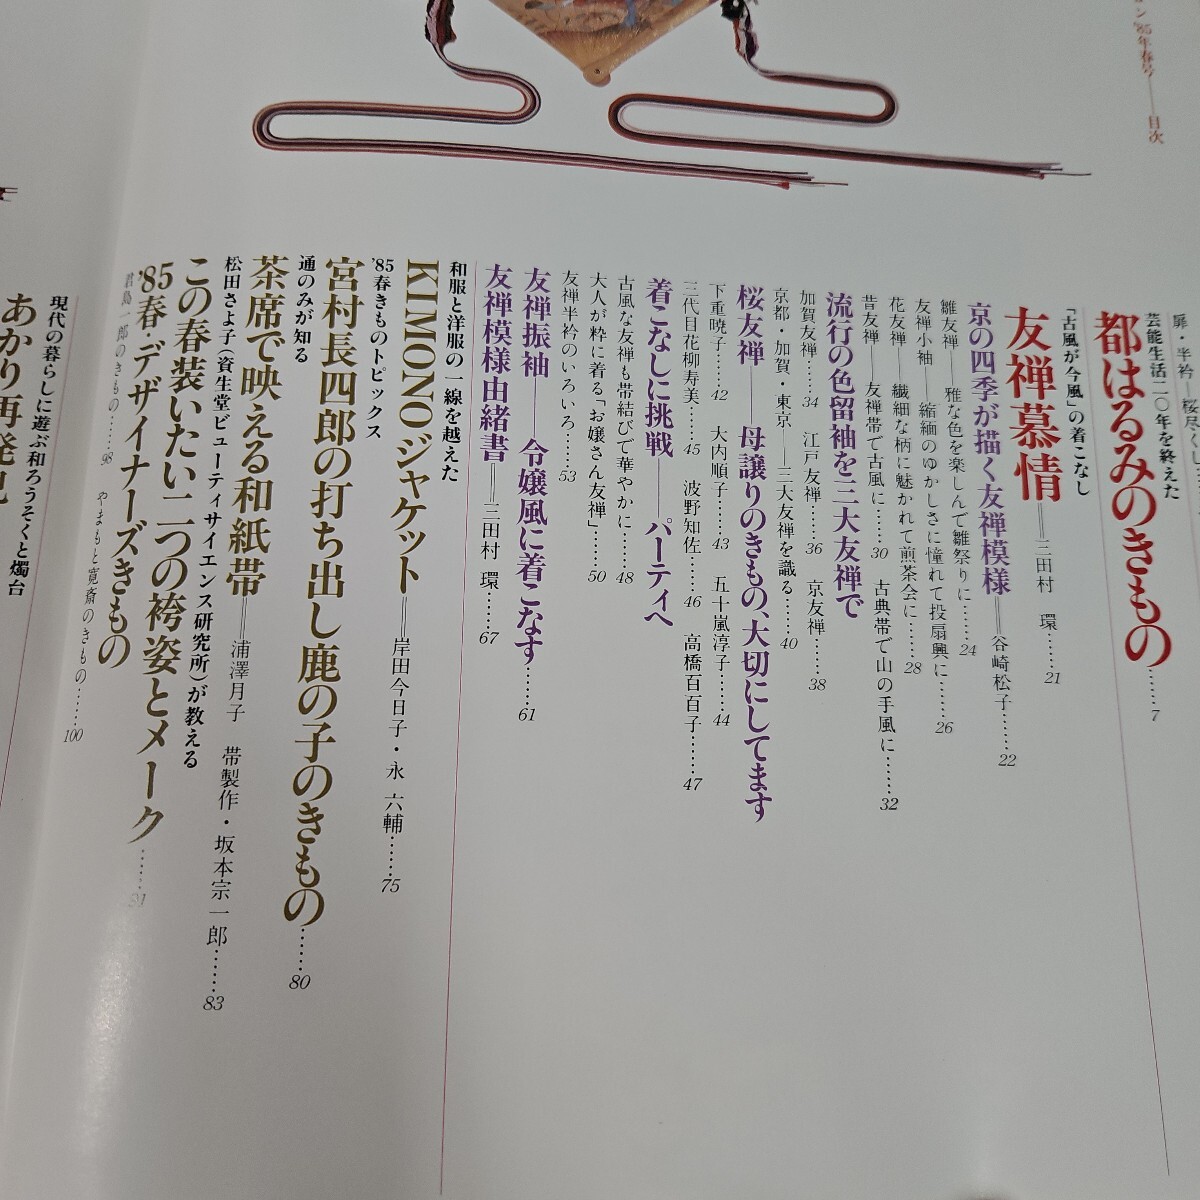 '85年春号──目次
扉・半衿─桜尽くし
芸能生活二〇年を終えた
都はるみのきもの……7
「古風が今風」の着こなし
友禅慕情＝三田村 環……21
京の四季が描く友禅模様＝谷崎松子……22
雛友禅──雅な色を楽しんで雛祭りに……24
友禅小袖──縮緬のゆかしさに憧れて投扇興に……26
花友禅──繊細な柄に魅かれて煎茶会に……28
昔友禅──友禅帯で古風に……30 古典帯で山の手風に……32
流行の色留袖を三大友禅で
加賀友禅……34 江戸友禅……36 京友禅……38
京都・加賀・東京──三大友禅を識る……40
桜友禅──母譲りのきもの、大切にしてます
下重暁子……42 大内順子……43 五十嵐淳子……44
三代目花柳寿美……45 波野知佐……46 高橋百百子……47
着こなしに挑戦──パーティへ
古風な友禅も帯結びで華やかに……48
大人が粋に着る「お嬢さん友禅」……50
友禅半衿のいろいろ……53
友禅振袖──令嬢風に着こなす……61
友禅模様由緒書＝三田村 環……67
和服と洋服の一線を越えた
KIMONOジャケット＝岸田今日子・永 六輔……75
'85春きものトピックス
宮村長四郎の打ち出し鹿の子のきもの……80
通のみが知る
茶席で映える和紙帯＝浦澤月子 帯製作・坂本宗一郎……83
松田さよ子(資生堂ビューティサイエンス研究所)が教える
この春装いたい二つの袴姿とメーク……91
'85春・デザイナーズきもの
君島一郎のきもの……98 やまもと寛斎のきもの……100
現代の暮らしに遊ぶ和ろうそくと燭台
あかり再発見